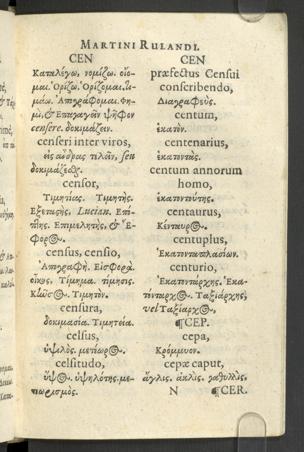 MARTINI RULANDI.
CEN
Καταλέγω, νομίζω. οἴο-
μαι. Ὁρίζω. Ὁρίζομαι. τι-
μάω. Ἀπογράφομαι. Φη-
μὶ, & Ἐπαγαγεῖν ψῆφον
censere. δοκιμάζειν.
censeri inter viros,
εἰς ἄνδρας τελεῖν, seu
δοκιμάζεσθαι.
censor,
Τιμητίας. Τιμητής.
Ἐξεταστής, Lucian. Ἐπί-
τιμητής. Ἐπιμελητής, & Ἔ-
φορος.
census, censio,
Ἀπογραφή. Εἰσφορὰ
οἶκος, Τίμημα. τίμησις.
Κλῶσος. Τιμητόν.
censura,
δοκιμασία. Τιμητεία.
celsus,
ὑψηλὸς. μετέωρος.
celsitudo,
ὕψος. ὑψηλότης. με-
τεωρισμός.
CEN
præfectus Censui
conscribendo,
Διαγραφεύς.
centum,
ἑκατόν.
centenarius,
ἑκατοντάς.
centum annorum
homo,
ἑκατοντούτης.
centaurus,
Κένταυρος.
centuplus,
Ἑκατονταπλασίων.
centurio,
Ἑκατοντάρχης. Ἑκα-
τόνταρχος. Ταξιάρχης,
vel Ταξίαρχος.
¶CEP.
cepa,
Κρόμμυον.
cepæ caput,
ἄγλις. γαθυλλίς.
N ¶CER.